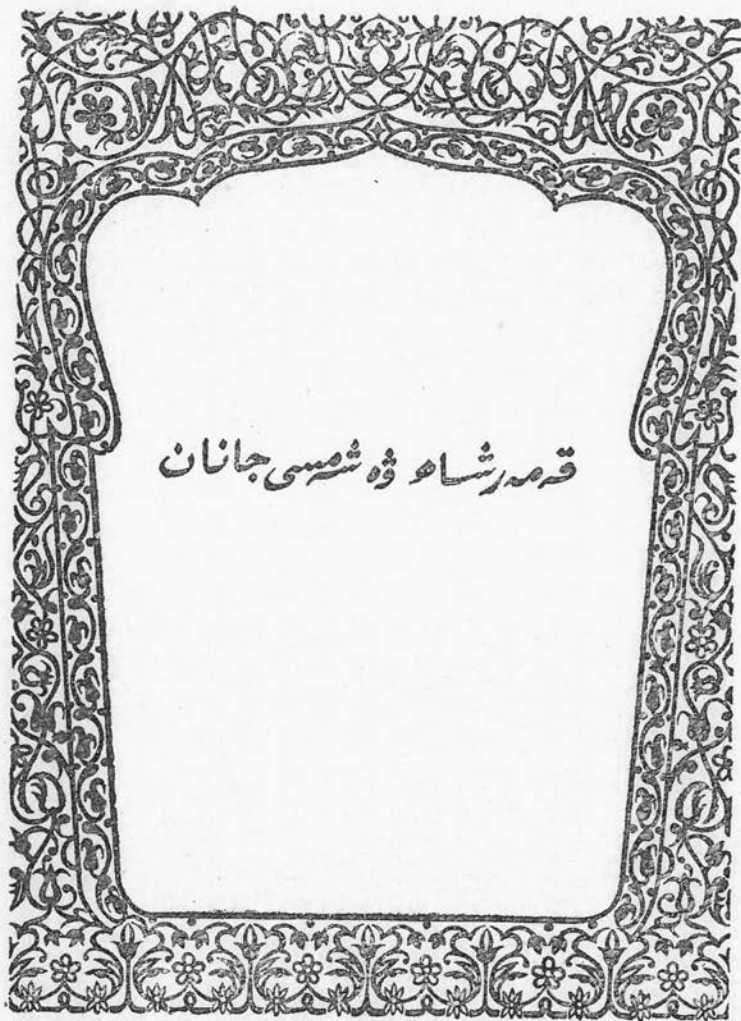 قەمەرشاھ ۋە شەمسى جانان